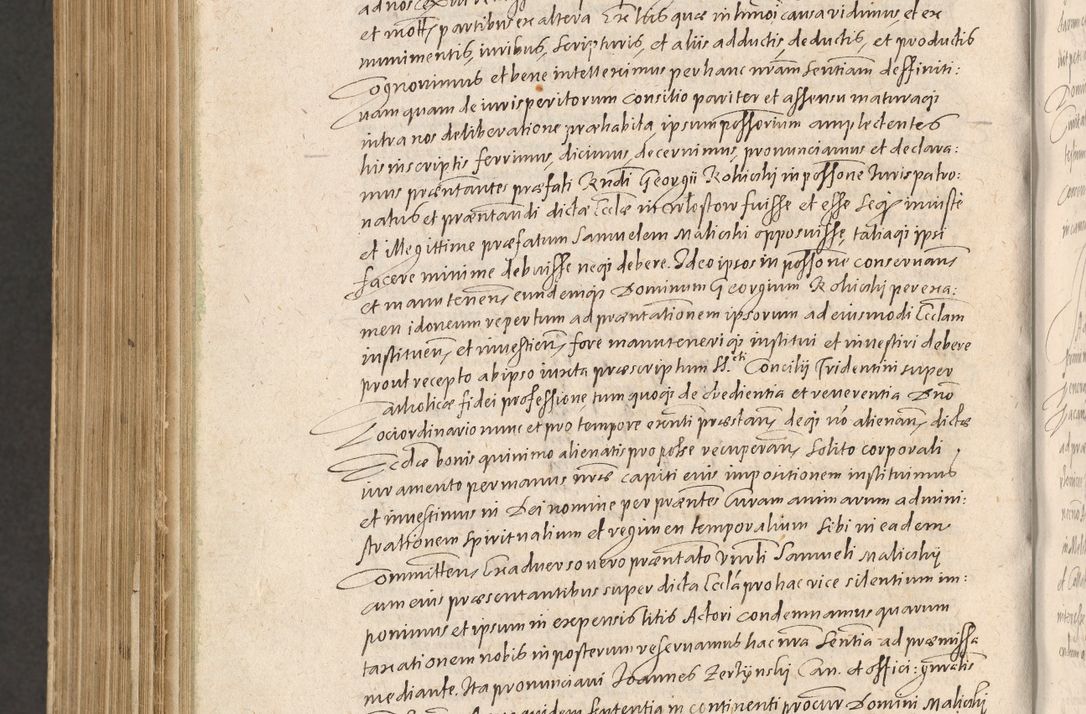 et mott partibus ex altera Ex his quæ in hmoi causa vidimus et ex
munimentis, iuribus, scripturis, et aliis adductis, deductis, et productis
Cognovimus et bene intelleximus per hanc nram sentiam deffiniti:
uam quam de iurisperitorum consilio pariter et assensu maturaqz
intra nos deliberatione præhabita ipsum possorium amplectentes
his in scriptis ferrimus, dicimus, decernimus, pronunciamus et declara:
mus præntantes præfati Rndi Georgii Rohicski in possone Iuris patro:
natus et præntandi dictæ Ecclæ in fuisse et esse seqz iniuste
et illegittime præfatum Samuelem Malicski opposuisse, taliaqz ipsi
facere minime debuisse neqz debere. Ideo ipsos in possone conservan
et manutenen eundemqz Dominum Georgium Rohicskj per exa:
men idoneum repertum ad præntationem ipsorum ad eiusmodi Ecclam
instituen et investien fore manuteneriqz institui et investiri debere
prout recepto ab ipso iuxta præscriptum SS.cti Concilij Tridentini super
Catholicæ fidei professione, tum quoqz de obedientia et reverentia Dno
Loci ordinario nunc et pro tempore exnti præstan, deqz nō alienan dictæ
Ecclæ bonis quinimo alienatis pro posse recuperan, solito corporali
iuramento per manus nras capiti eius impositionem instituimus
et investimus in Dei nomine per præntes Curam animarum admini:
strationem spiritualium et regimen temporalium sibi in eadem
Committen, Ex adverso vero præntato Samueli Malicskij
eius præsentantibus super dicta Ecclâ pro hac vice silentium im:
ponimus et ipsum in expensis litis Actori condemnamus quarum
taxationem nobis in posterum reservamus hac nra sentia ad præmissa
mediante. Ita pronunciavi Joannes Zerzynski Can. et offici: gnralis
quidem sententiam in continenti procur Domini Malicskij